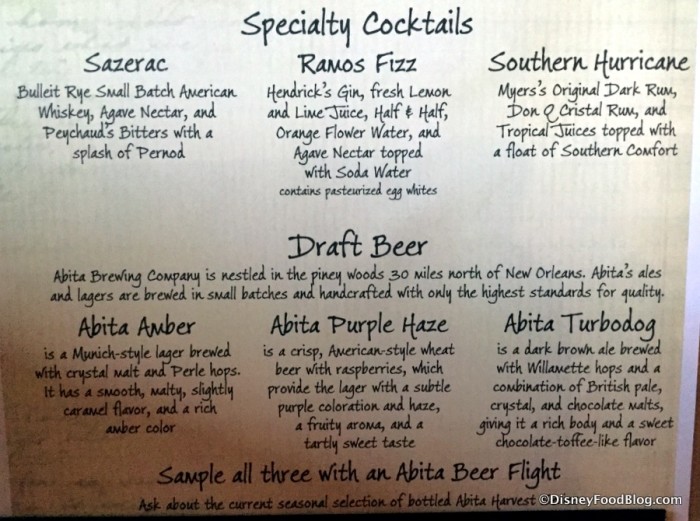 Specialty Cocktails
Sazerac
Bulleit Rye Small Batch American
Whiskey, Agave Nectar, and
Peychaud's Bitters with a
splash of Pernod
Ramos Fizz
Hendrick's Gin, fresh Lemon
and Lime Juice, Half & Half,
Orange Flower Water, and
Agave Nectar topped
with Soda Water
contains pasteurized egg whites
Southern Hurricane
Myers's Original Dark Rum,
Don Q Cristal Rum, and
Tropical Juices topped with
a float of Southern Comfort
Draft Beer
Abita Brewing Company is nestled in the piney woods 30 miles north of New Orleans. Abita's ales
and lagers are brewed in small batches and handcrafted with only the highest standards for quality.
Abita Amber
is a Munich-style lager brewed
with crystal malt and Perle hops.
It has a smooth, malty, slightly
caramel flavor, and a rich
amber color
Abita Purple Haze
is a crisp, American-style wheat
beer with raspberries, which
provide the lager with a subtle
purple coloration and haze,
a fruity aroma, and a
tartly sweet taste
Abita Turbodog
is a dark brown ale brewed
with Willamette hops and a
combination of British pale,
crystal, and chocolate malts,
giving it a rich body and a sweet
chocolate-toffee-like flavor
Sample all three with an Abita Beer Flight
Ask about the current seasonal selection of bottled Abita Harvest
©DisneyFoodBlog.com